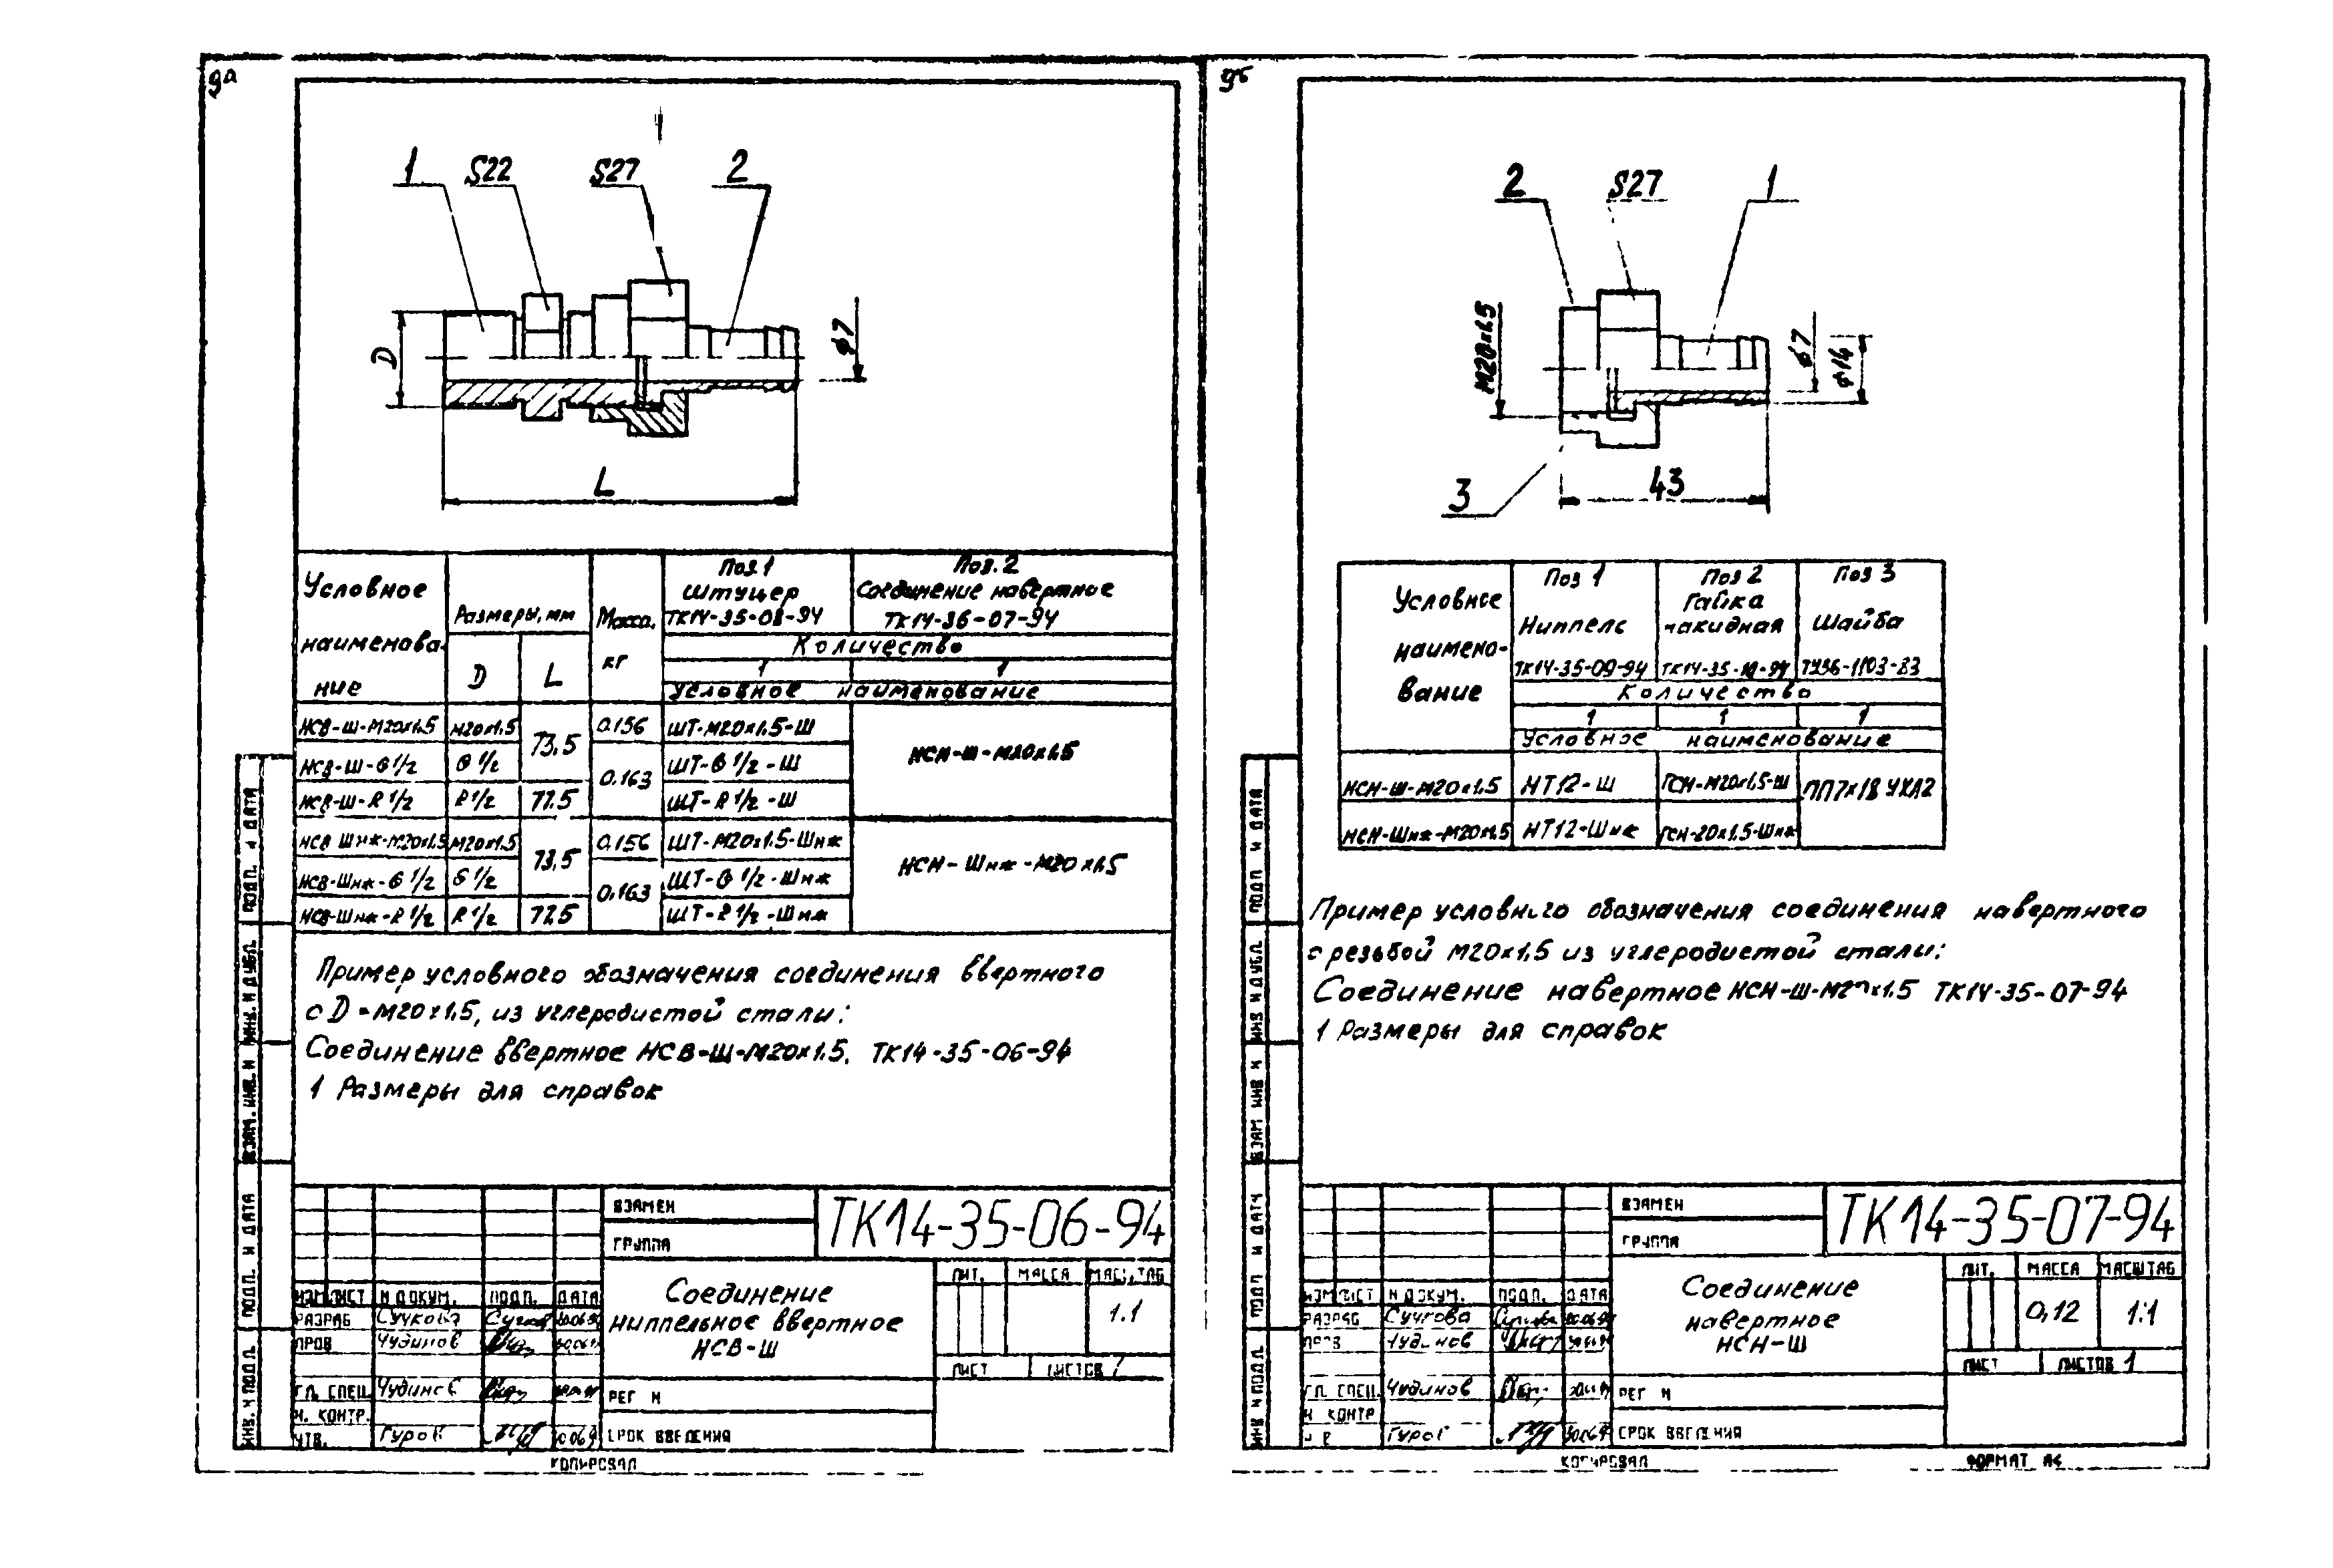 9а
1 S22 S27 2
D
ø7
L
Условное наименова-ние
Размеры, мм
D L
Масса, кг
Поз.1 Штуцер ТК14-35-08-94
Поз.2 Соединение навертное ТК14-36-07-94
Количество
1 1
Условное наименование
НСВ-Ш-М20х1,5 М20х1,5 73,5 0.156 ШТ-М20х1,5-Ш НСН-Ш-М20х1,5
НСВ-Ш-G 1/2 G 1/2 0.163 ШТ-G 1/2-Ш
НСВ-Ш-R 1/2 R 1/2 77.5 ШТ-R 1/2-Ш
НСВ Шнж-М20х1,5 М20х1,5 73,5 0,156 ШТ-М20х1,5-Шнж НСН-Шнж-М20х1,5
НСВ-Шнж-G 1/2 G 1/2 0,163 ШТ-G 1/2-Шнж
НСВ-Шнж-R 1/2 R 1/2 77.5 ШТ-R 1/2-Шнж
Пример условного обозначения соединения ввертного
с D=М20х1,5, из углеродистой стали:
Соединение ввертное НСВ-Ш-М20х1,5. ТК14-35-06-94
1 Размеры для справок
ИНВ. N ПОДЛ. ПОДП. И ДАТА ВЗАМ. ИНВ. N ИНВ. N ДУБЛ. ПОДП. И ДАТА
ВЗАМЕН
ГРУППА
ТК14-35-06-94
Соединение
ниппельное ввертное
НСВ-Ш
ЛИТ. МАССА МАСШТАБ
1:1
ЛИСТ ЛИСТОВ
ИЗМ ЛИСТ N ДОКУМ. ПОДП. ДАТА
РАЗРАБ Сучкова
ПРОВ Чудинов
ГЛ. СПЕЦ. Чудинов
Н. КОНТР.
УТВ. Гуров
РЕГ N
СРОК ВВЕДЕНИЯ
КОПИРОВАЛ
9б
2 S27 1
М20х1,5
ø7
ø14
3
43
Условное наимено-вание
Поз 1 Ниппель ТК14-35-09-94
Поз 2 Гайка накидная
Поз 3 Шайба ТУ36-1103-83
Количество
1 1 1
Условное наименование
НСН-Ш-М20х1,5 НТ12-Ш ГСН-М20х1,5-Ш ПП7х18 УХЛ2
НСН-Шнж-М20х1,5 НТ12-Шнж ГСН-20х1,5-Шнж
Пример условного обозначения соединения навертного
с резьбой М20х1,5 из углеродистой стали:
Соединение навертное НСН-Ш-М20х1,5 ТК14-35-07-94
1 Размеры для справок
ИНВ N ПОДЛ ПОДП И ДАТА ВЗАМ ИНВ N ИНВ N ДУБЛ ПОДП И ДАТА
ВЗАМЕН
ГРУППА
ТК14-35-07-94
Соединение
навертное
НСН-Ш
ЛИТ. МАССА МАСШТАБ
0,12 1:1
ЛИСТ ЛИСТОВ 1
ИЗМ ЛИСТ N ДОКУМ. ПОДП. ДАТА
РАЗРАБ Сучкова
ПРОВ Чудинов
ГЛ. СПЕЦ. Чудинов
Н КОНТР
Гуров
РЕГ N
СРОК ВВЕДЕНИЯ
КОПИРОВАЛ
ФОРМАТ А4